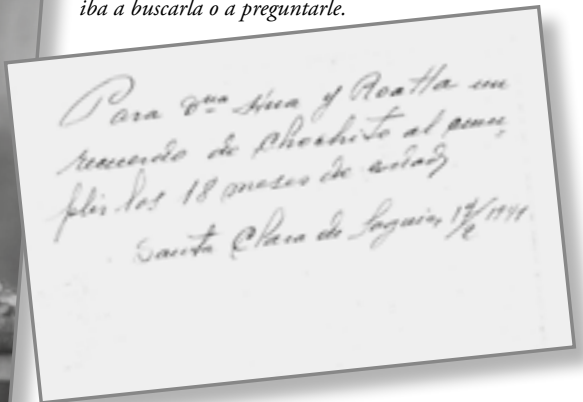 iba a buscarla o a preguntarle.
Para Dña Lina y Roatta un
recuerdo de Chochito al cum-
plir los 18 meses de edad
Santa Clara de Saguier, 14/2/1941